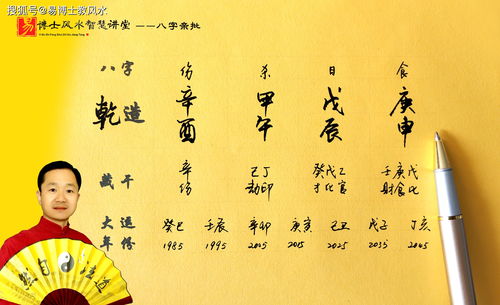 搜狐号@易博士救风水
易 博士风水智慧讲堂 ——八字亲批
八字 伤 杀 日 食
乾造 辛酉 甲午 戊辰 庚申
藏干 辛 己丁 癸戊乙 壬庚戊
伤 劫印 才比官 财食比
大运 癸巳 壬辰 辛卯 庚寅 己丑 戊子 丁亥
年份 1985 1995 2005 2015 2025 2035 2045
然自法道